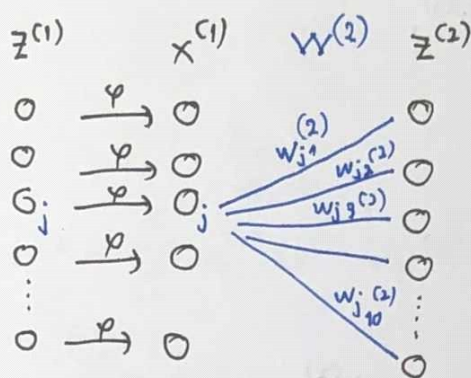 z^(1) x^(1) W^(2) z^(2)
φ
φ
φ
φ
φ
j j
w_j1^(2)
w_j2^(2)
w_j3^(2)
w_j10^(2)